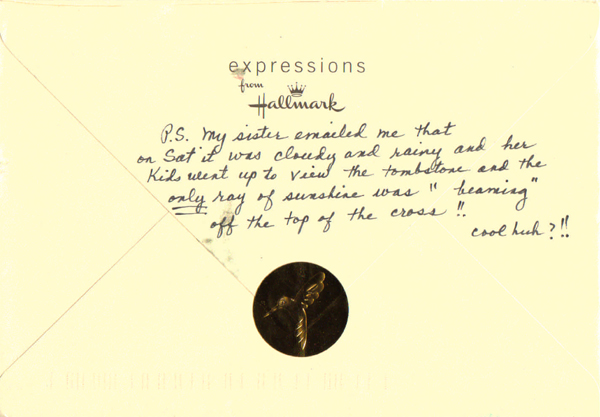 expressions
from
Hallmark
P.S. My sister emailed me that
on Sat it was cloudy and rainy and her
Kids went up to view the tombstone and the
only ray of sunshine was "beaming"
off the top of the cross!!
cool huh?!!